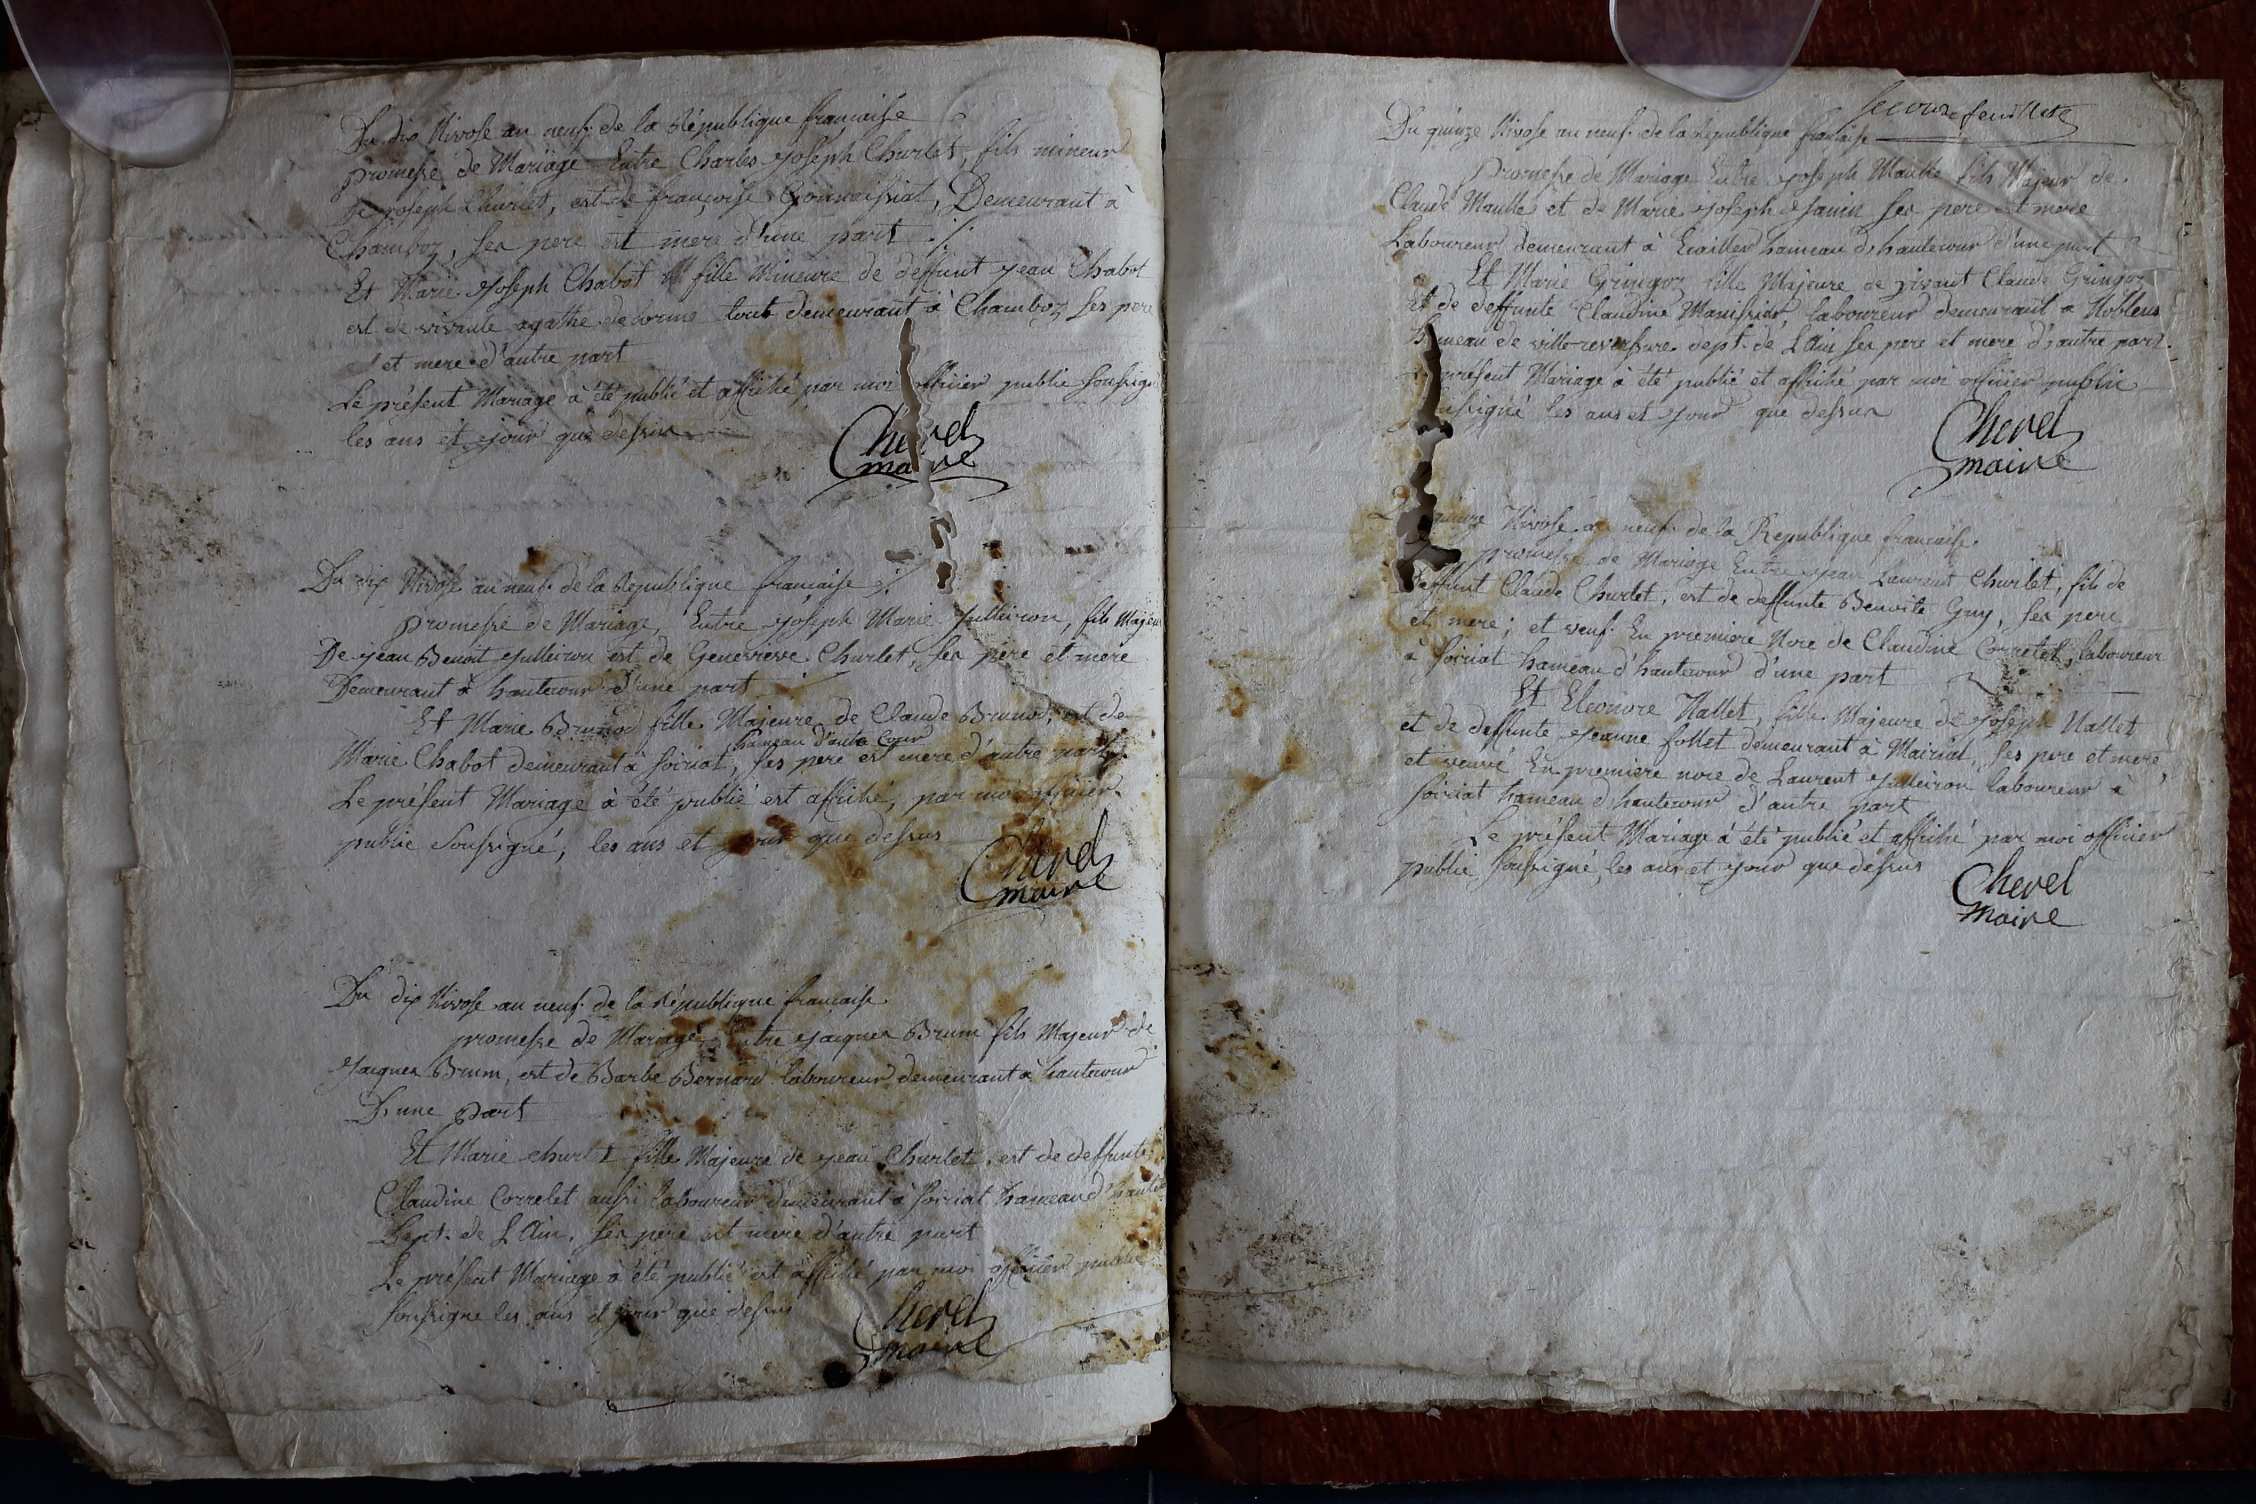 Du dix Nivose an neuf. de la République francaise
promesse de Mariage Entre Charles Joseph Churlet, fils mineur
de joseph Churlet, est de françoise Demeurant à
Chamboz, ses pere est mere d'une part ./.
Et Marie Joseph Chabot fille Mineure de deffunt jean Chabot
est de vivante agathe tout demeurant à Chamboz ses pere
et mere d'autre part
Le présent Mariage à été publié et affiché par moi officier public soussigné
les ans et jour que dessus
Chevel
maire
Du dix Nivose an neuf. de la République francaise ./.
promesse de Mariage, Entre Joseph Marie Julleiron, fils Majeur
De jean Benoit Julleiron est de Genevieve Churlet, ses père et mère
Demeurant à hautecour d'une part
Et Marie Brunod fille Majeure de Claude Brunod, est de
hameau d'aute Cour
Marie Chabot demeurant à soiriat, ses pere et mere d'autre part.
Le présent Mariage à été publié est affiché, par moi officier
public soussigné, les ans et jour que dessus
Chevel
maire
Du dix Nivose an neuf. de la République francaise
promesse de Mariage Entre Jacques Brum fils Majeur de
Jacques Brum, est de Barbe Bernard laboureur demeurant à hautecour
D'une part
Et Marie churlet fille Majeure de jean Churlet, est de deffunte
Claudine Corretet aussi laboureur demeurant à soiriat hameau d'haute
Dept. de L'Ain, ses pere est mere d'autre part
Le présent Mariage à été publié est affiché par moi officier public
soussigne les ans et jour que dessus
Chevel
maire
second feuillet
Du quinze Nivose an neuf. de la République française
Promesse de Mariage Entre joseph Maulle fils Majeur de
Claude Maulle et de Marie joseph Janin ses pere est mere
Laboureur demeurant à hameau d'hautecour d'une part
Et Marie Gringoz fille Majeure de vivant Claude Gringoz
Et de deffunte Claudine laboureur demeurant à Noblens
hameau de ville-reversure dept. de L'Ain ses pere et mere d'autre part.
présent Mariage à été publié et affiché par moi officier public
soussigné les ans et jour que dessus
Chevel
maire
quinze Nivose an neuf. de la République francaise
promesse de Mariage Entre jean Laurant Churlet, fils de
deffunt Claude Churlet, est de deffunte Benoite Guy, ses pere
et mere; et veuf. En premiere Nore de Claudine Corretet, laboureur
à soiriat hameau d'hautecour d'une part
Et Eleonore Nallet, fille Majeure de Joseph Nallet
et de deffunte Jeanne follet demeurant à Mairiat, ses pere et mere,
et veuve En premiere nore de Laurent Julleiron laboureur à
soiriat hameau d'hautecour d'autre part
Le présent Mariage à été publié et affiché par moi officier
public soussigné, les ans et jour que dessus
Chevel
Maire